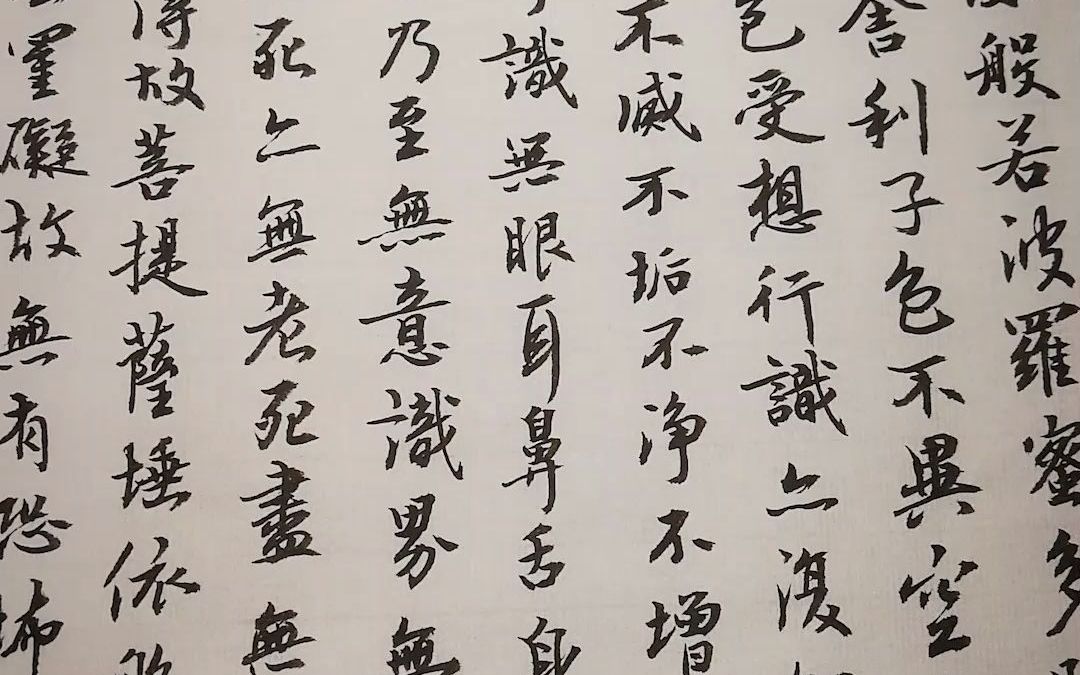 般若波羅蜜多
舍利子色不異空
色受想行識亦復
不滅不垢不淨不增
識無眼耳鼻舌身
乃至無意識界無
死亦無老死盡無
得故菩提薩埵依般
罣礙故無有恐怖